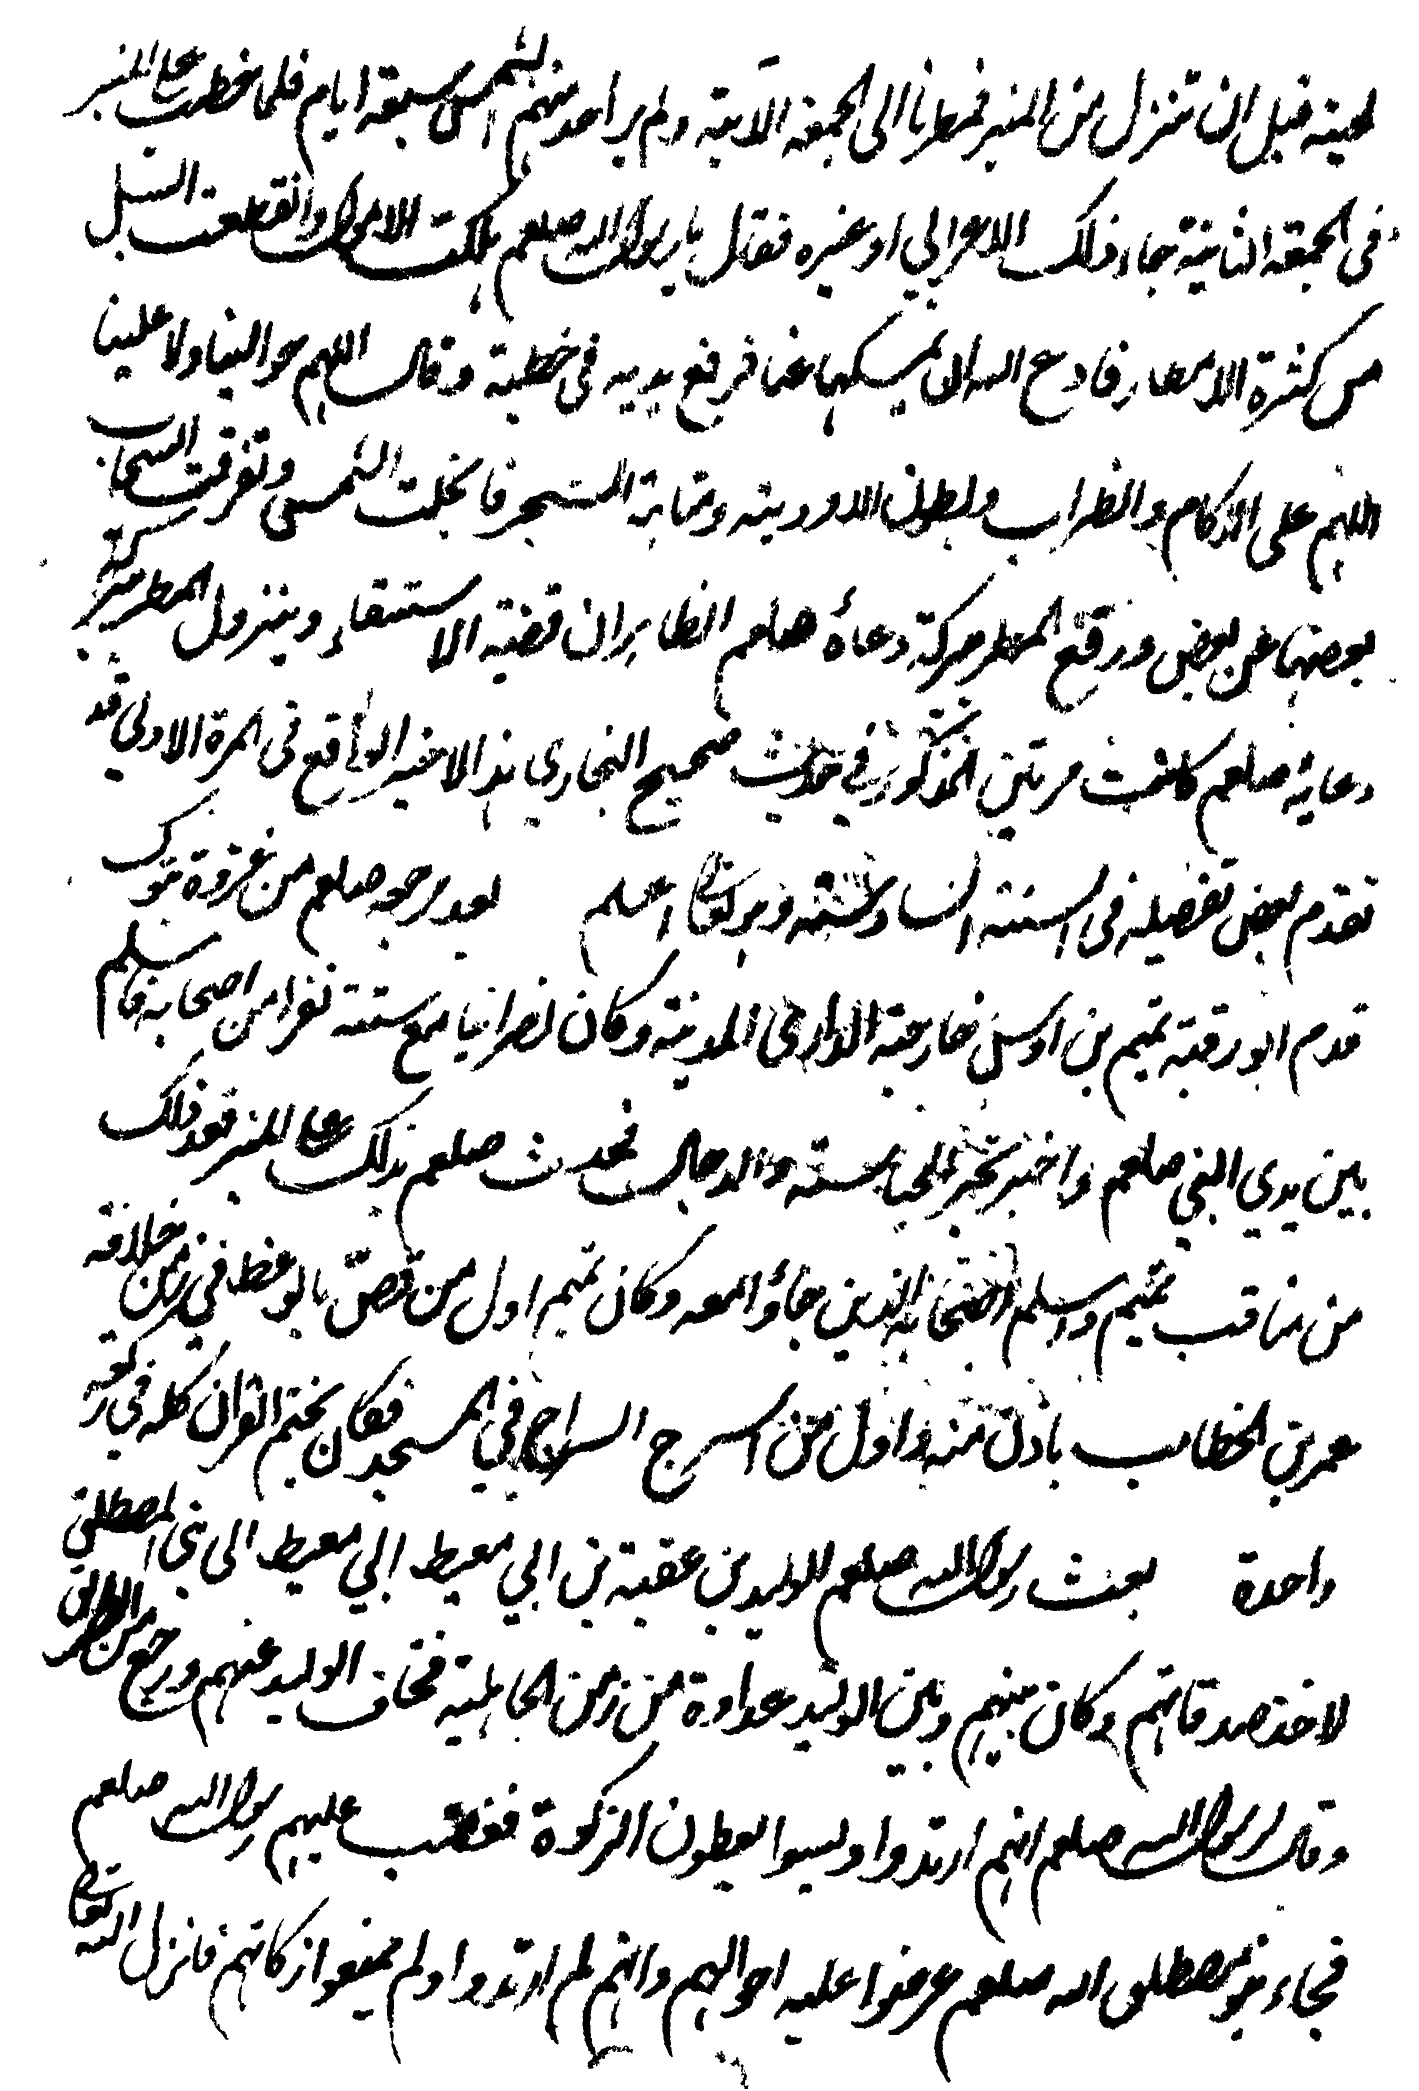 لحيته قبل ان تنزل من المنبر فمطرنا الى الجمعة الآتية ولم ير احد منهم الشمس سبعة ايام فلما خطب على المنبر
فى الجمعة الثانية جاء ذلك الاعرابي او غيره فقال يا رسول الله صلعم هلكت الاموال وانقطعت السبل
من كثرة الامطار فادع الله ان يمسكها عنا فرفع يديه فى خطبة وقال اللهم حوالينا ولا علينا
اللهم على الآكام والظراب وبطون الاودية ومنابة الشجر فانجلت الشمس وتفرقت السحاب
بعضها عن بعض ورقع المطر حركة دعاءه صلعم الظاهر ان قضية الاستسقاء وينزول المطر ببركة
دعائه صلعم كانت مرتين المذكور في حديث صحيح البخاري هذا الاخير الواقع فى المرة الاولي قد
تقدم بعض تفصيله فى السنة السادسة وهو تعالى اعلم بعد مرجعه صلعم من غزوة تبوك
قدم ابو رقية تميم بن اوس بن خارجة الداري المدينة وكان نصرانيا مع ستة نفرا من اصحابه فاسلم
بين يدي النبي صلعم واخبر بخبر الجساسة والدجال فحدث صلعم بذلك على المنبر فعد ذلك
من مناقب تميم واسلم اصحابه الذين جاؤا معه وكان تميم اول من قص بالوعظ في زمن خلافة
عمر بن الخطاب باذن منه واول من اسرج السراج في المسجد فكان يختم القران كله في ركعة
واحدة بعث رسول الله صلعم الوليد بن عقبة بن ابي معيط ابي معيط الى بني المصطلق
لاخذ صدقاتهم وكان بينهم وبين الوليد عداوة من زمن الجاهلية فخاف الوليد عنهم ورجع من الطريق
وقال لرسول الله صلعم انهم ارتدوا وليسوا يعطون الزكوة فغضب عليهم رسول الله صلعم
فجاء بنو المصطلق اله صلعم عرضوا عليه احوالهم وانهم لم ارتدوا ولم يمنعوا زكاتهم فانزل الله تعالى